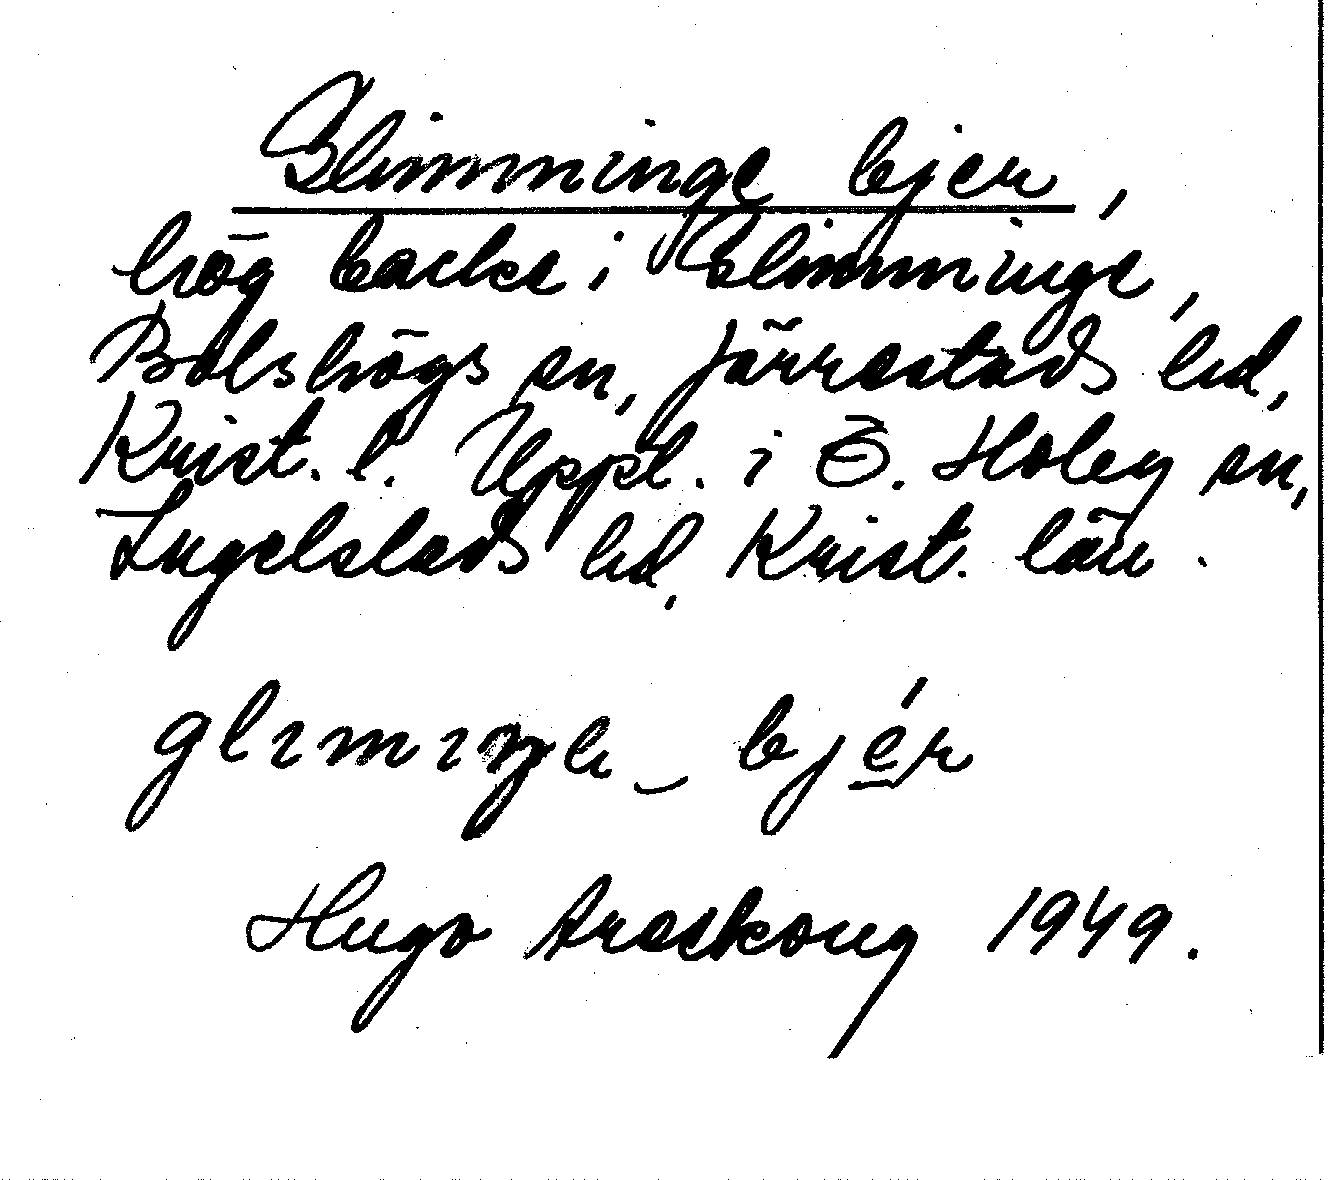 Glimminge bjer,
hög backe i Glimminge,
Bolshögs sn, Järrestads hd,
Krist. l. Uppt. i Ö. Hoby sn,
Ingelstads hd, Krist. län.
glımıŋe‿bjér
Hugo Areskoug 1949.